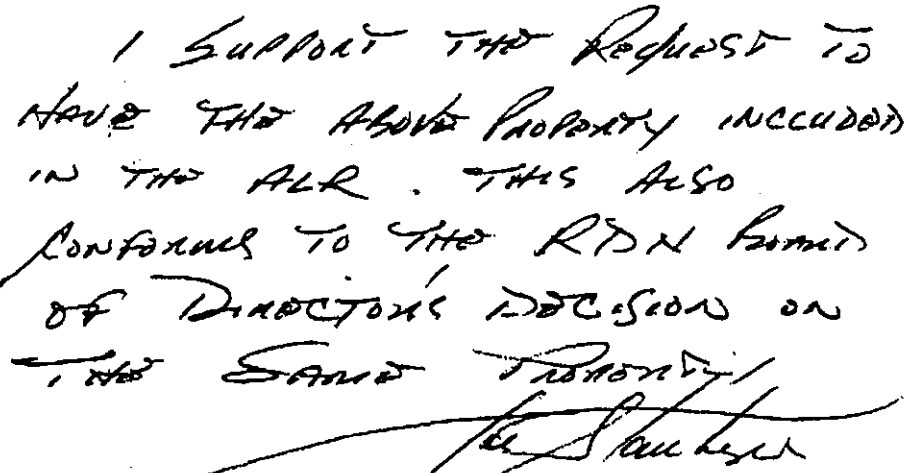 I SUPPORT THE REQUEST TO
HAVE THE ABOVE PROPERTY INCLUDED
IN THE ALR. THIS ALSO
CONFORMS TO THE RDN BOARD
OF DIRECTOR'S DECISION ON
THE SAME PROPERTY!